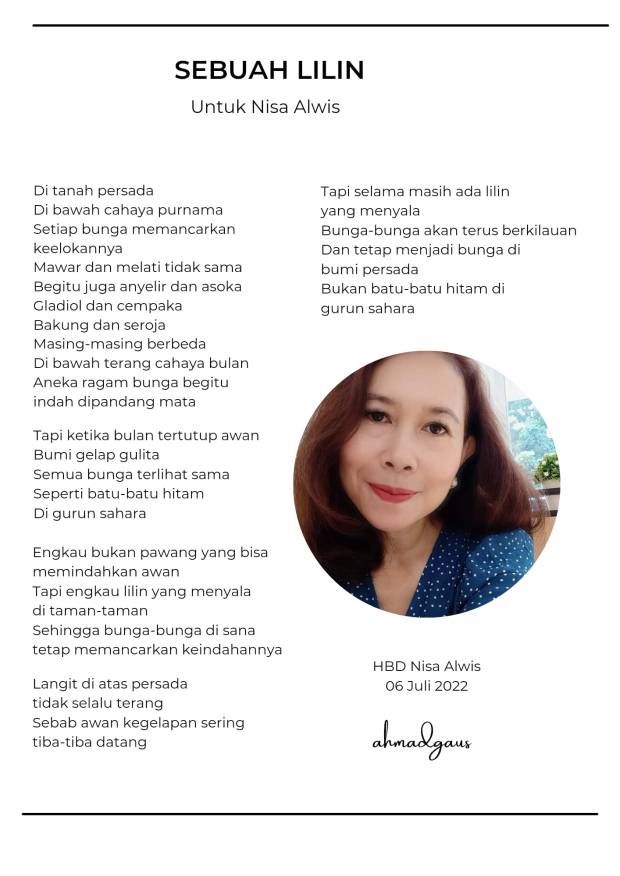 SEBUAH LILIN
Untuk Nisa Alwis
Di tanah persada
Di bawah cahaya purnama
Setiap bunga memancarkan
keelokannya
Mawar dan melati tidak sama
Begitu juga anyelir dan asoka
Gladiol dan cempaka
Bakung dan seroja
Masing-masing berbeda
Di bawah terang cahaya bulan
Aneka ragam bunga begitu
indah dipandang mata
Tapi ketika bulan tertutup awan
Bumi gelap gulita
Semua bunga terlihat sama
Seperti batu-batu hitam
Di gurun sahara
Engkau bukan pawang yang bisa
memindahkan awan
Tapi engkau lilin yang menyala
di taman-taman
Sehingga bunga-bunga di sana
tetap memancarkan keindahannya
Langit di atas persada
tidak selalu terang
Sebab awan kegelapan sering
tiba-tiba datang
Tapi selama masih ada lilin
yang menyala
Bunga-bunga akan terus berkilauan
Dan tetap menjadi bunga di
bumi persada
Bukan batu-batu hitam di
gurun sahara
HBD Nisa Alwis
06 Juli 2022
ahmadgaus